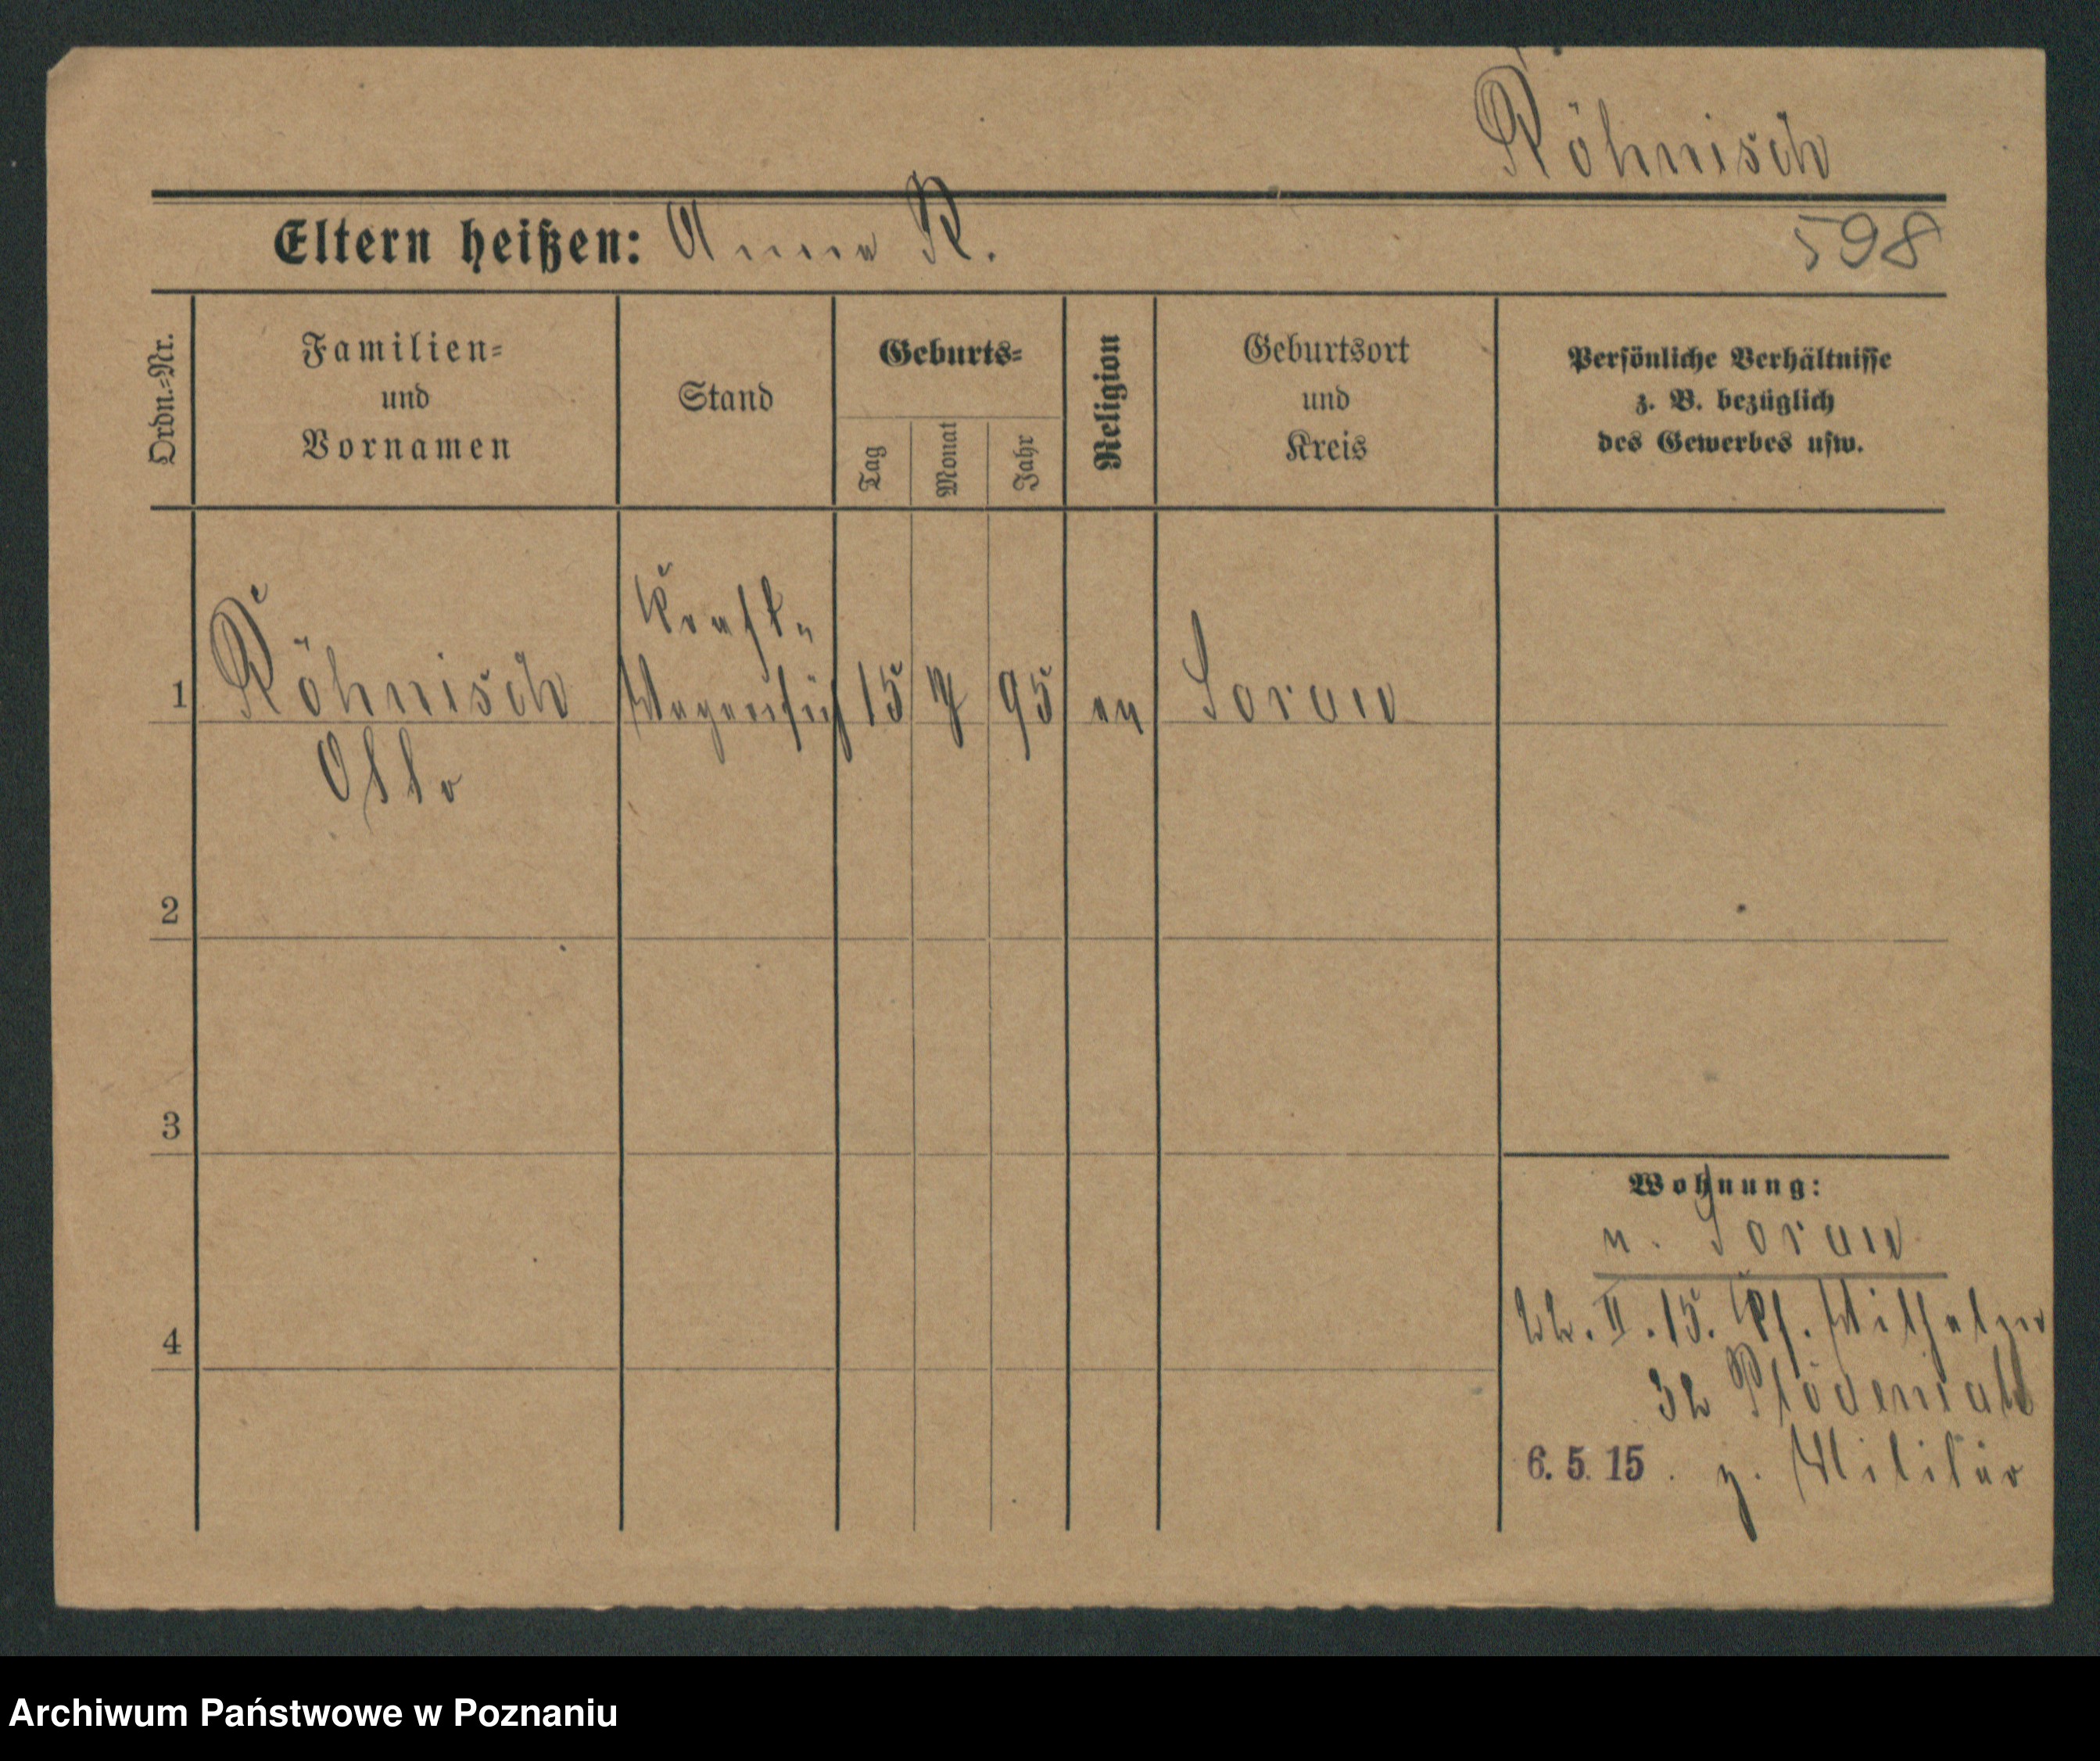 Röhnisch
Eltern heißen: Anna R.
598
Ordn.=Nr.
Familien=
und
Vornamen
Stand
Geburts=
Tag
Monat
Jahr
Religion
Geburtsort
und
Kreis
Persönliche Verhältnisse
z. B. bezüglich
des Gewerbes usw.
Kraft=
1 Röhnisch Wagenfüh 15 7 95 ev Sorau
Otto
2
3
4
Wohnung:
n. Sorau
22. II. 15. Kf. Wilhelm
32
6. 5. 15. z. Militär
Archiwum Państwowe w Poznaniu